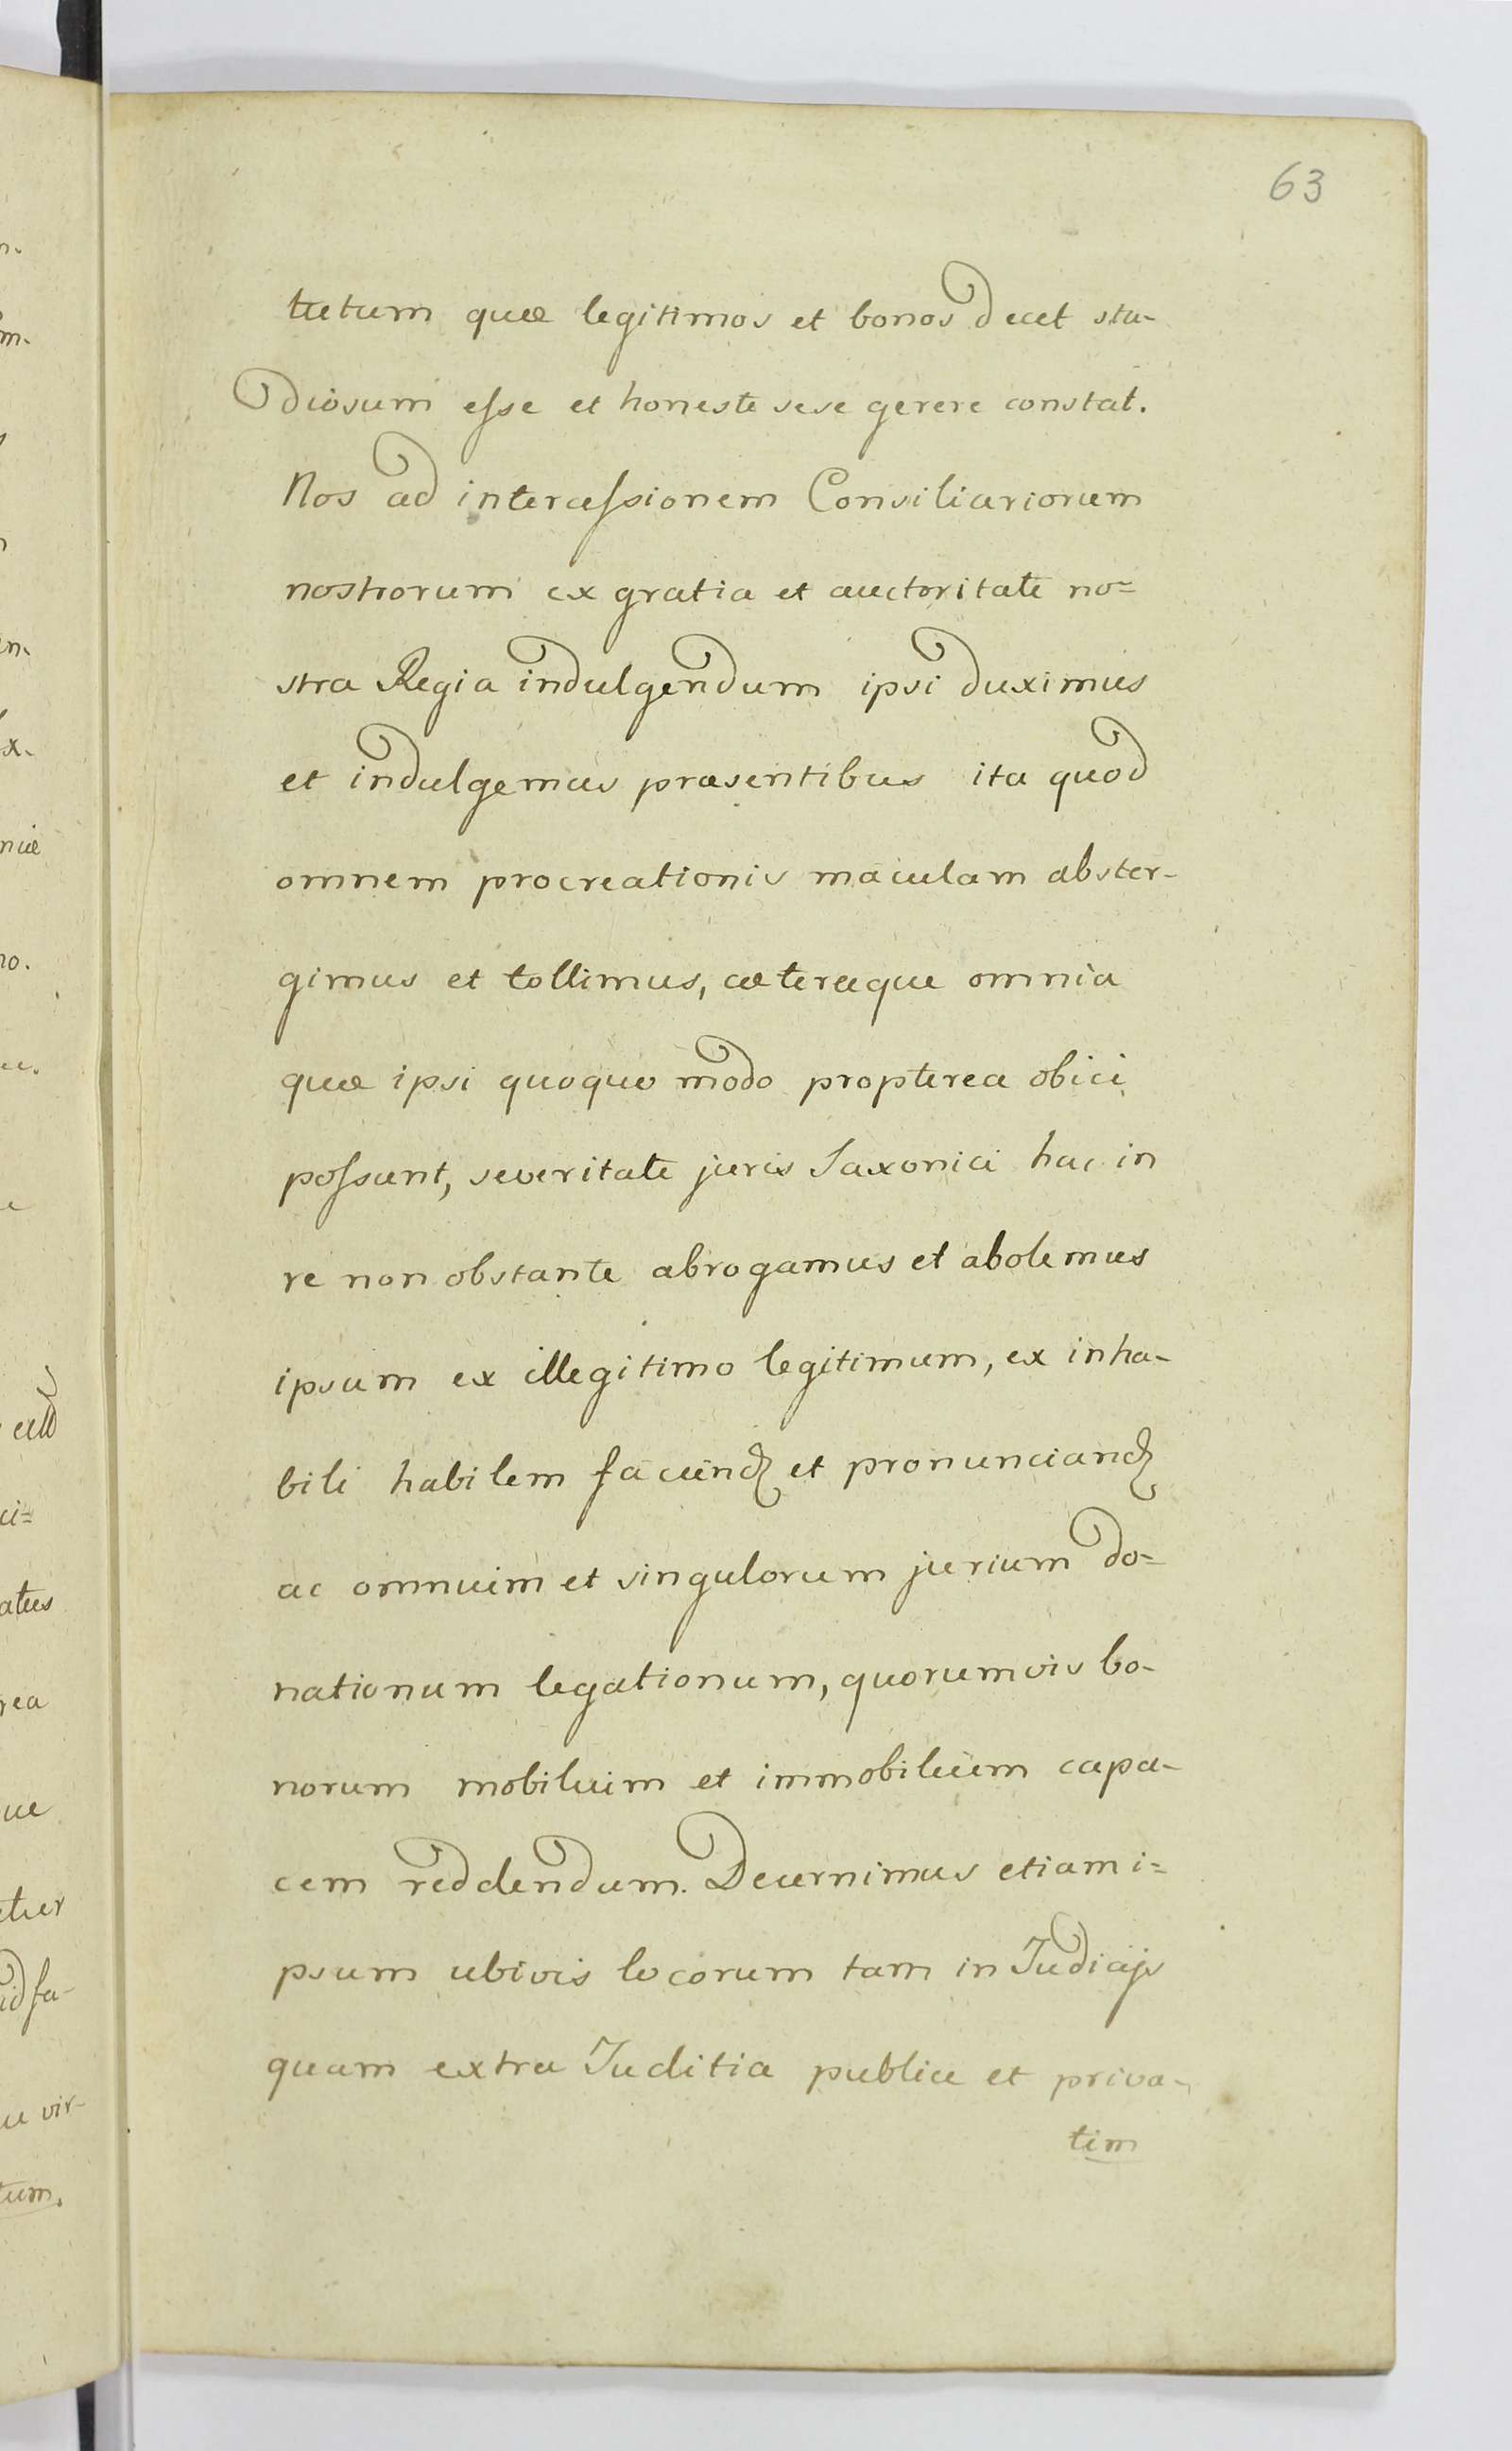 63
tutum quæ legitimos et bonos decet stu-
diosum esse et honeste sese gerere constat.
Nos ad intercessionem Consiliariorum
nostrorum ex gratia et auctoritate no=
stra Regia indulgendum ipsi duximus
et indulgemus præsentibus ita quod
omnem procreationis maculam abster-
gimus et tollimus, cæteraque omnia
quæ ipsi quoquo modo propterea obici
possunt, severitate juris Saxonici hac in
re non obstante abrogamus et abolemus
ipsum ex illegitimo legitimum, ex inha-
bili habilem faciend et pronunciand
ac omnium et singulorum jurium do=
nationum legationum, quorumvis bo-
norum mobilium et immobilium capa-
cem reddendum. Decernimus etiam i=
psum ubivis locorum tam in Judicijs
quam extra Juditia publice et priva-
tim
n.
m.
n
in.
x.
niæ
no.
ci=
atus
rea
ue
etur
id fa-
vir-
tum.